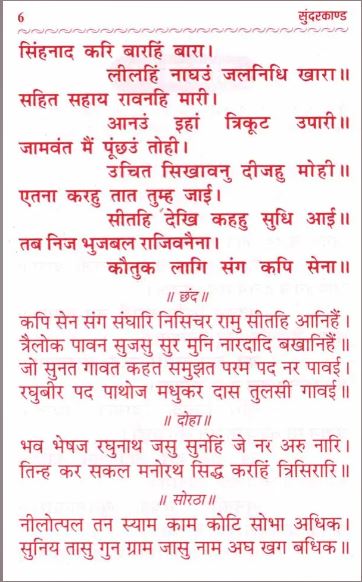 6 सुंदरकाण्ड
सिंहनाद करि बारहिं बारा।
लीलहिं नाघउं जलनिधि खारा॥
सहित सहाय रावनहि मारी।
आनउं इहां त्रिकूट उपारी॥
जामवंत मैं पूंछउं तोही।
उचित सिखावनु दीजहु मोही॥
एतना करहु तात तुम्ह जाई।
सीतहि देखि कहहु सुधि आई॥
तब निज भुजबल राजिवनैना।
कौतुक लागि संग कपि सेना॥
॥ छंद॥
कपि सेन संग संघारि निसिचर रामु सीतहि आनिहैं।
त्रैलोक पावन सुजसु सुर मुनि नारदादि बखानिहैं॥
जो सुनत गावत कहत समुझत परम पद नर पावई।
रघुबीर पद पाथोज मधुकर दास तुलसी गावई॥
॥ दोहा॥
भव भेषज रघुनाथ जसु सुनहिं जे नर अरु नारि।
तिन्ह कर सकल मनोरथ सिद्ध करहिं त्रिसिरारि॥
॥ सोरठा॥
नीलोत्पल तन स्याम काम कोटि सोभा अधिक।
सुनिय तासु गुन ग्राम जासु नाम अघ खग बधिक॥